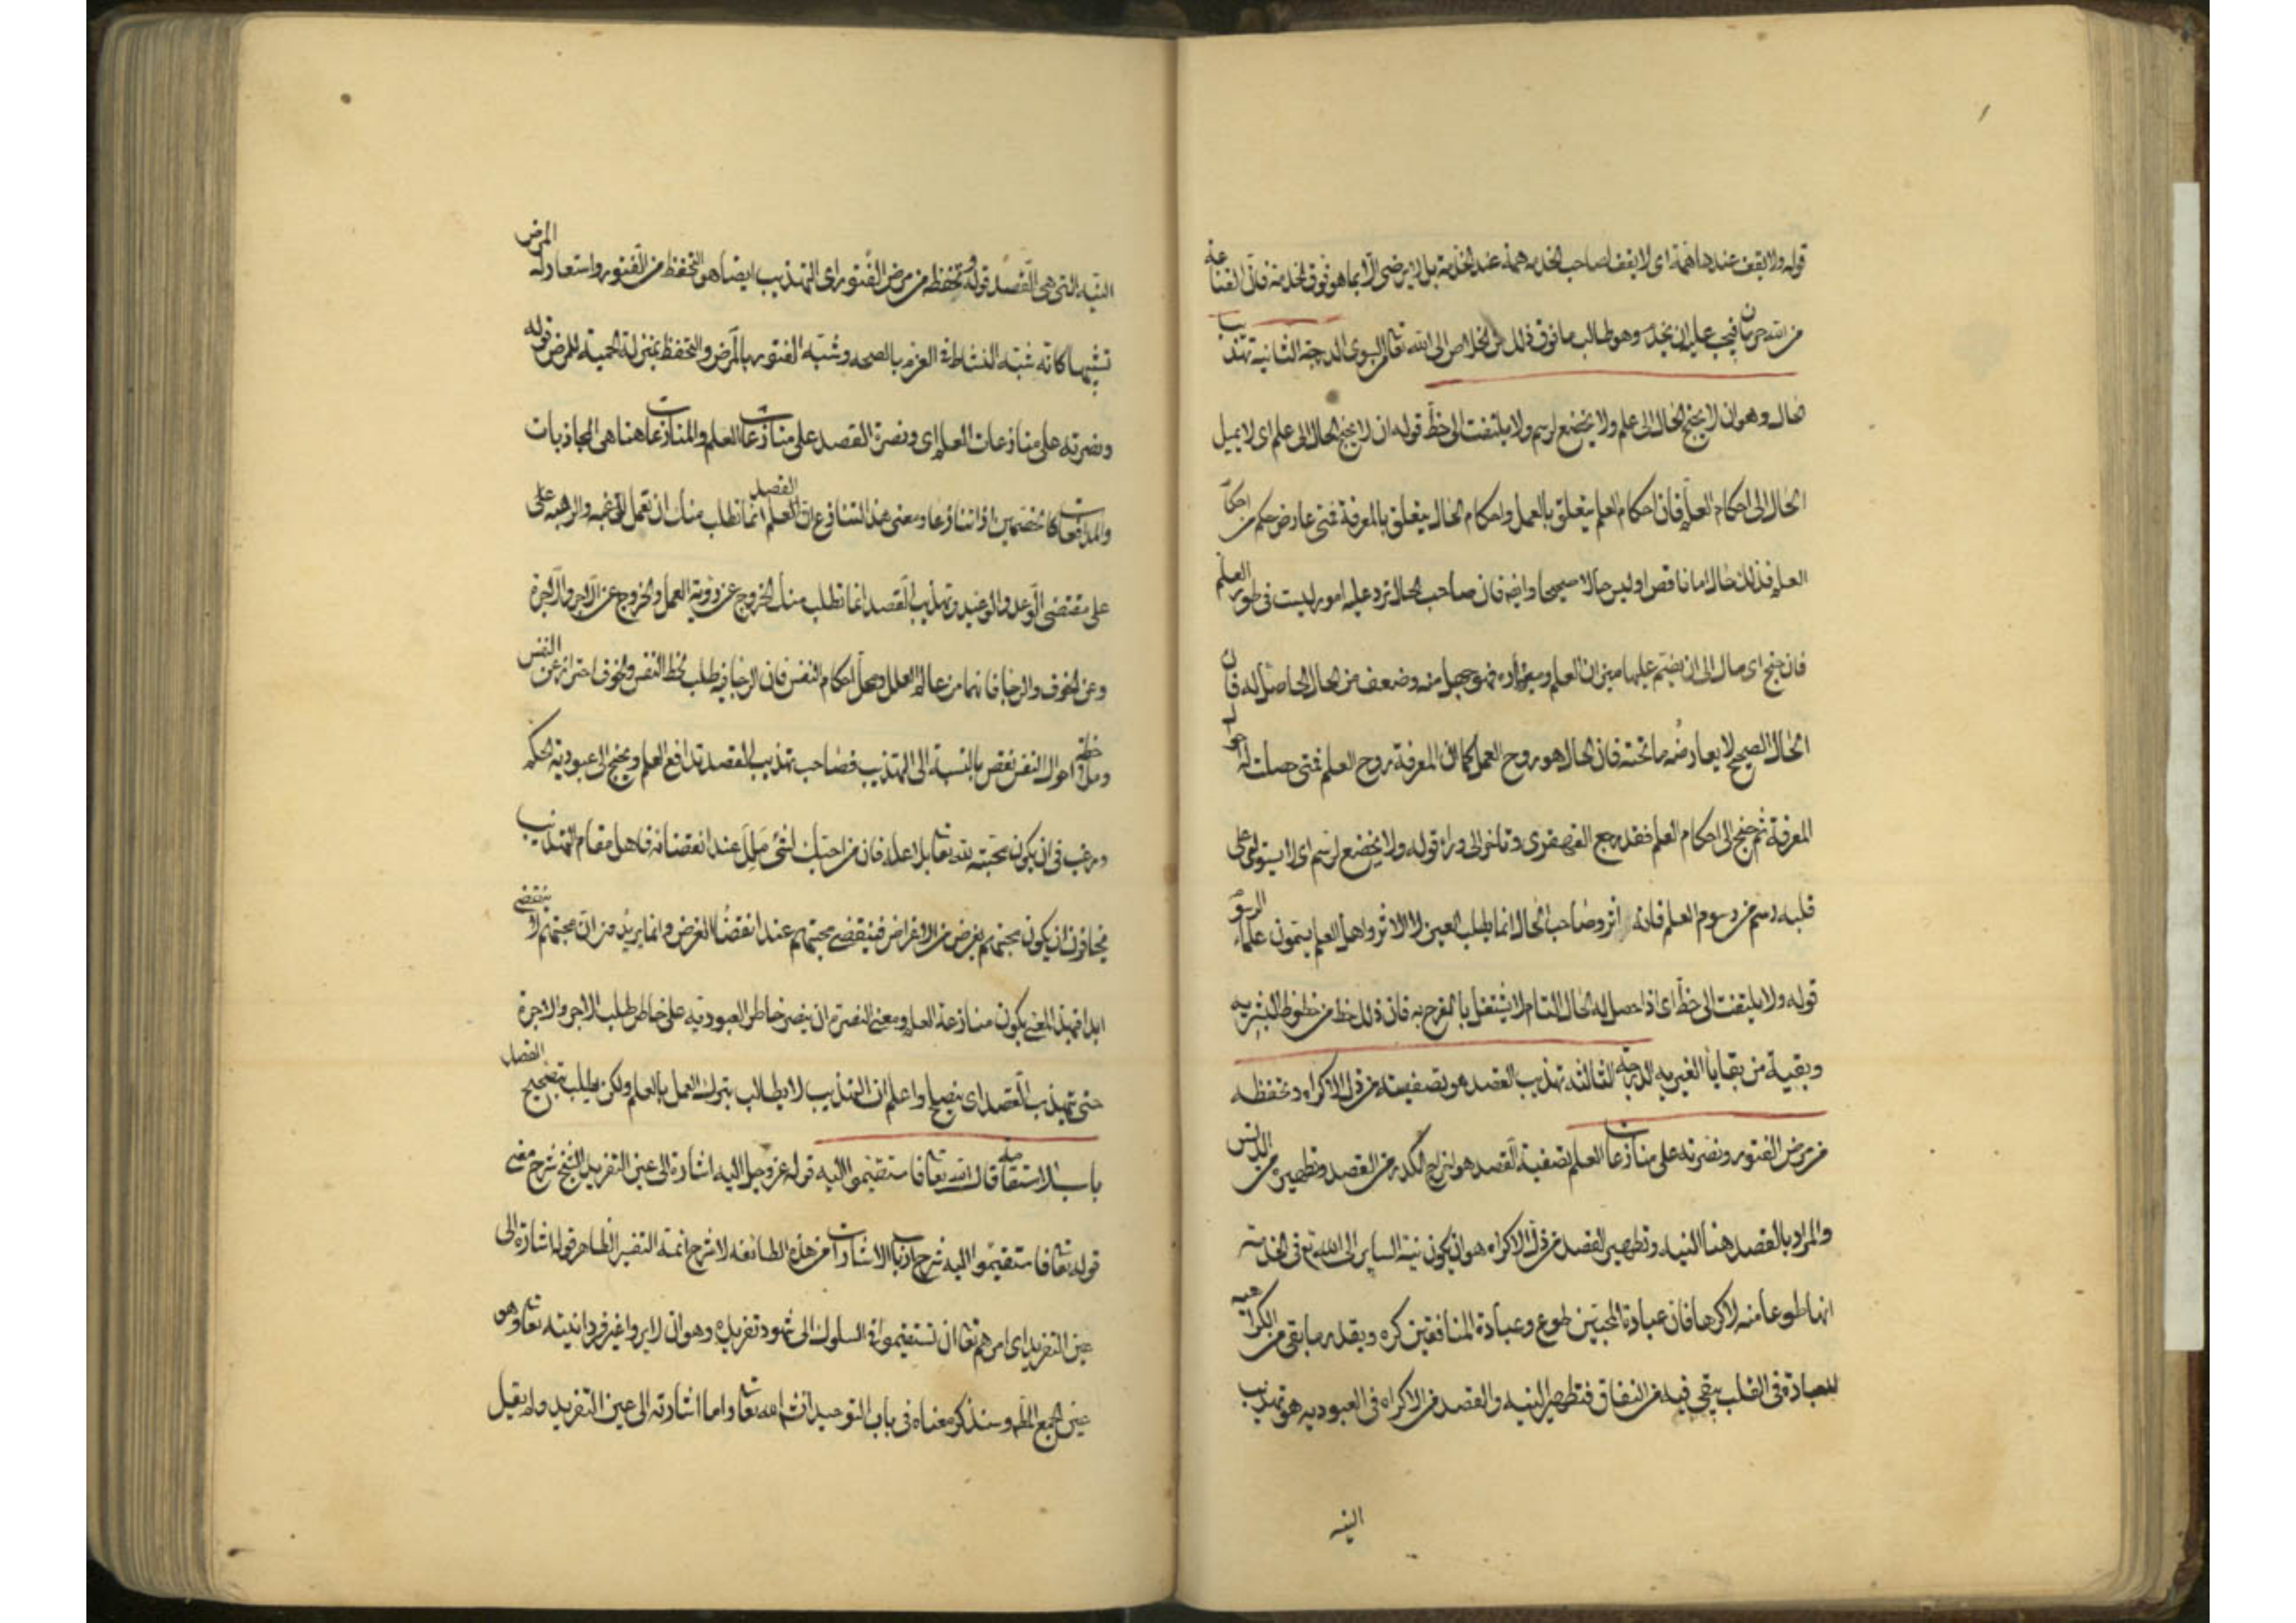 قوله ولا يقف عندها همة اى لا يقف لصاحب الخدمه همة عند الخدمة بل لا يرضى الا بما هو فوق الخدمة فان القناعة
من الله حرمان فيجب عليه ان يخدم وهو طالب ما فوق ذلك من الخلاص الى الله تعا من السوى الدرجة الثانية تهذيب
الحال وهو ان لا يجنح الحال الى علم ولا يخضع لرسم ولا يلتفت الى حظ قوله ان لا يجنح الحال الى علم اى لا يميل
الحال الى احكام العلم فان احكام العلم يتعلق بالعمل واحكام الحال يتعلق بالمعرفة فمتى عارض حكم من احكام
العلم فذلك حال اما ناقص او ليس حالا صحيحا وايضا فان صاحب الحال ترد عليه امور ليست فى طور العلم
فان جنح اى مال الى ان يقيم عليها ميزان العلم ومعياره فهو جهل منه وضعف من الحال الحاصل له فان
الحال الصحيح لا يعارضه ما تحته فان الحال هو روح العمل كما ان المعرفة روح العلم فمتى حصلت له احوال
المعرفة ثم جنح الى احكام العلم فقد رجع القهقرى وتاخر الى وراء قوله ولا يخضع لرسم اى لا يستولى على
قلبه رسم من رسوم العلم فانه اثر وصاحب الحال انما يطلب العين لا الاثر واهل العلم يسمون علماء الرسوم
قوله ولا يلتفت الى حظ اى اذا حصل له الحال التام لا يشتغل بالفرح به فان ذلك حظ من حظوظ البشريه
وبقية من بقايا الغيريه الدرجة الثالثه تهذيب القصد هو تصفيته من ذل الاكراه وتحفظه
من مرض الفتور ونصرته على منازعات العلم تصفية القصد هو اخراج الكدر من القصد وتطهيره من الدنس
والمراد بالقصد هنا النيه وتطهير القصد من ذل الاكراه هو ان يكون نية الساير الى الله تع فى الخدمة
انها طوعا منه لا كرها فان عبادة المحبين طوع وعبادة المنافقين كره وبقدر ما بقى من الكراهيه
للعبادة فى القلب يبقى فيه من النفاق فتطهير النيه والقصد من الاكراه فى العبوديه هو تهذيب
النيه
النيه التى هى القصد قوله وتحفظه من مرض الفتور اى التهذيب ايضا هو التحفظ من الفتور واستعار له المرض
تشبيها كانه شبه النشاط فى العزم بالصحه وشبه الفتور بالمرض والتحفظ بمنزلة الحمية للمرض قوله
ونصرته على منازعات العلم اى ونصرة القصد على منازعات العلم والمنازعات هنا هى المجاذبات
والمدافعات كالخصمين اذا تنازعا ومعنى هذا التنازع ان العلم انما تطلب منك ان تعمل للرغبه والرهبه على
على مقتضى الوعد والوعيد وتهذيب القصد انما تطلب منك الخروج عن رؤية العمل والخروج عن الاجر والاجرة
وعن الخوف والرجا فانهما من عالم العلل ومحل احكام النفس فان الرجا فيه طلب لحظ النفس والخوف احتراز عن النفس
احوال النفس نقص بالنسبة الى التهذيب فصاحب تهذيب القصد تدافع العلم ويجنح الى عبودية الحكم
ويرغب فى ان يكون محبته لله تعا بلا علة فان من احبك لشئ ملك عند انقضائه فاهل مقام التهذيب
يخافون ان يكون محبتهم بغرض من الاغراض فينقضى محبتهم عند انقضا الغرض وانما يريدون ان محبتهم لا ينقضى
ابدا فبهذا المعنى يكون منازعة العلم ومعنى النصرة ان ينصر خاطر العبوديه على خاطر طلب الاجر والاجرة
حتى يتهذب القصد اى يصلح واعلم ان التهذيب لا يطالب بترك العمل بالعلم ولكن يطلب تصحيح القصد
باب الاستقامة قال الله تعا فاستقيموا اليه قوله عز وجل اليه اشارة الى عين التفريد الشيخ شرح معنى
قوله تعا فاستقيموا اليه شرح ارباب الاشارات من هذه الطائفه لا شرح ائمة التفسير الظاهر قوله اشارة الى
عين التفريد اى امرهم تعا ان تستقيموا فى السلوك الى شهود تفريده وهو ان لا يروا غير فردانيته تعا وهو
عين الجمع وسنذكر معناه فى باب التوحيد ان شاء الله تعا واما اشارته الى عين التفريد ولم يقل